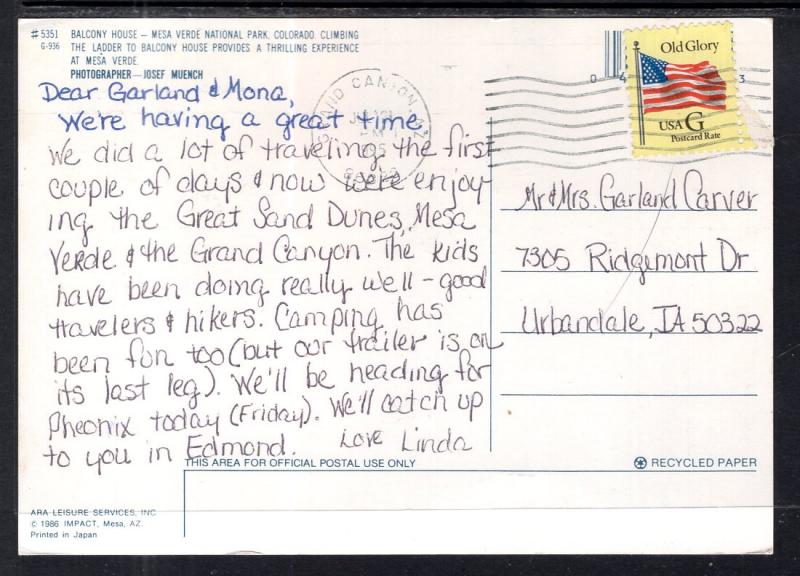 #5351 BALCONY HOUSE – MESA VERDE NATIONAL PARK, COLORADO. CLIMBING
G-936 THE LADDER TO BALCONY HOUSE PROVIDES A THRILLING EXPERIENCE
AT MESA VERDE.
PHOTOGRAPHER–JOSEF MUENCH
Dear Garland & Mona,
We're having a great time
We did a lot of traveling the first
couple of days & now we're enjoy-
ing the Great Sand Dunes, Mesa
Verde & the Grand Canyon. The kids
have been doing really well - good
travelers & hikers. Camping has
been fun too (but our trailer is on
its last leg). We'll be heading for
Pheonix today (Friday). We'll catch up
to you in Edmond. Love Linda
Old Glory
USA G
Postcard Rate
0 4
3
CANYON
Mr & Mrs. Garland Carver
7305 Ridgemont Dr
Urbandale, IA 50322
THIS AREA FOR OFFICIAL POSTAL USE ONLY
RECYCLED PAPER
ARA LEISURE SERVICES, INC.
© 1986 IMPACT, Mesa, AZ.
Printed in Japan